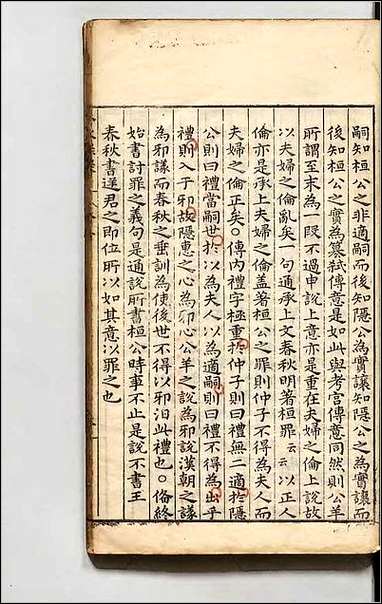 嗣知桓公之非適嗣而後知隱公為實讓知隱公之為實讓而
後知桓公之實為篡弒傳意是如此與考宮傳意同然則公羊
所謂至末為一段不過申說上意亦是重在夫婦之倫上說故
以夫婦之倫亂矣一句通承上文春秋明著桓罪云云以正人
倫亦是承上夫婦之倫蓋著桓公之罪則仲子不得為夫人而
夫婦之倫正矣○傳內禮字極重於仲子則曰禮無二適於隱
公則曰禮當嗣世於以為夫人以為適嗣則曰禮不得為出乎
禮則入于邪故隱惠之心為邪心公羊之說為邪說漢朝之議
為邪議而春秋之垂訓為使後世不得以邪汨此禮也○俻終
始書討罪之義句是通說所書桓公時事不止是說不書王
春秋書逆君之即位所以如其意以罪之也